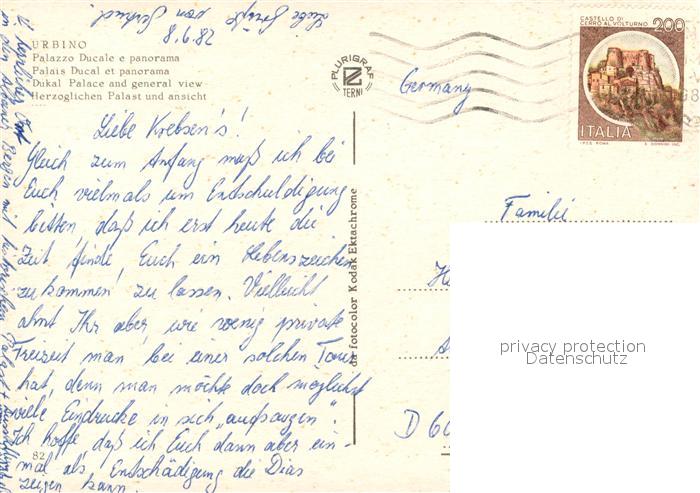 URBINO
Palazzo Ducale e panorama
Palais Ducal et panorama
Dukal Palace and general view
Herzoglichen Palast und ansicht
82
PLURIGRAF
TERNI
da fotocolor Kodak Ektachrome
CASTELLO DI
CERRO AL VOLTURNO
200
ITALIA
I.P.Z.S. ROMA
Germany
Familie
D 60
Liebe Krebsen's!
Gleich zum Anfang muß ich bei
Euch vielmals um Entschuldigung
bitten, daß ich erst heute die
Zeit finde, Euch ein Lebenszeichen
zukommen zu lassen. Vielleicht
ahnt Ihr aber, wie wenig private
Freizeit man bei einer solchen Tour
hat, denn man möchte doch möglichst
viele Eindrücke in sich „aufsaugen".
Ich hoffe, daß ich Euch dann aber ein-
mal als Entschädigung die Dias
zeigen kann.
Liebe Grüße von
28.9.8
privacy protection
Datenschutz